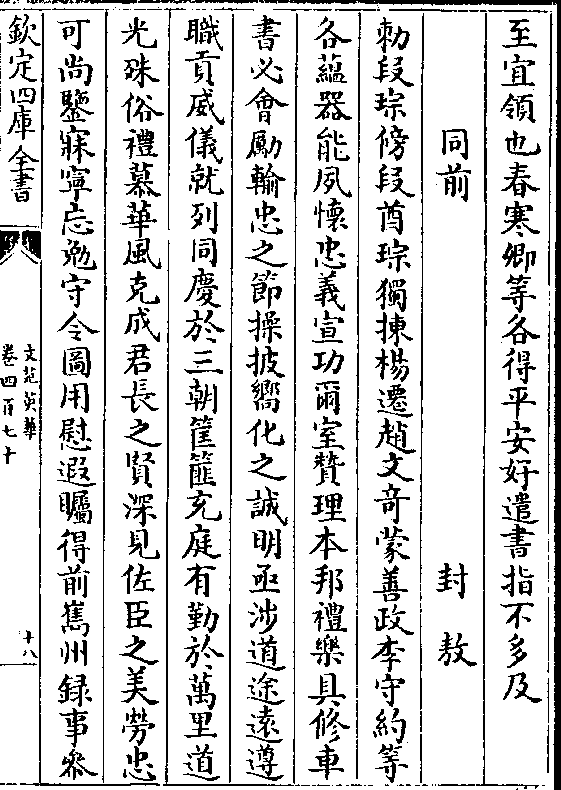 至宜領也春寒卿等各得平安好遣書指不多及
同前　封敖
勅段琮傍段酋琮獨揀楊遷趙文竒蒙善政李守約等
各蘊器能夙懷忠義宣功爾室贊理本邦禮樂具修車
書必會勵輸忠之節操披嚮化之誠明亟涉道途遠遵
職貢威儀就列同慶於三朝筐篚充庭有勤於萬里道
光殊俗禮慕華風克成君長之賢深見佐臣之美勞忠
可尚鑒寐寧忘勉守令圖用慰遐矚得前嶲州録事叅
欽定四庫全書
文苑英華
卷四百七十
十八